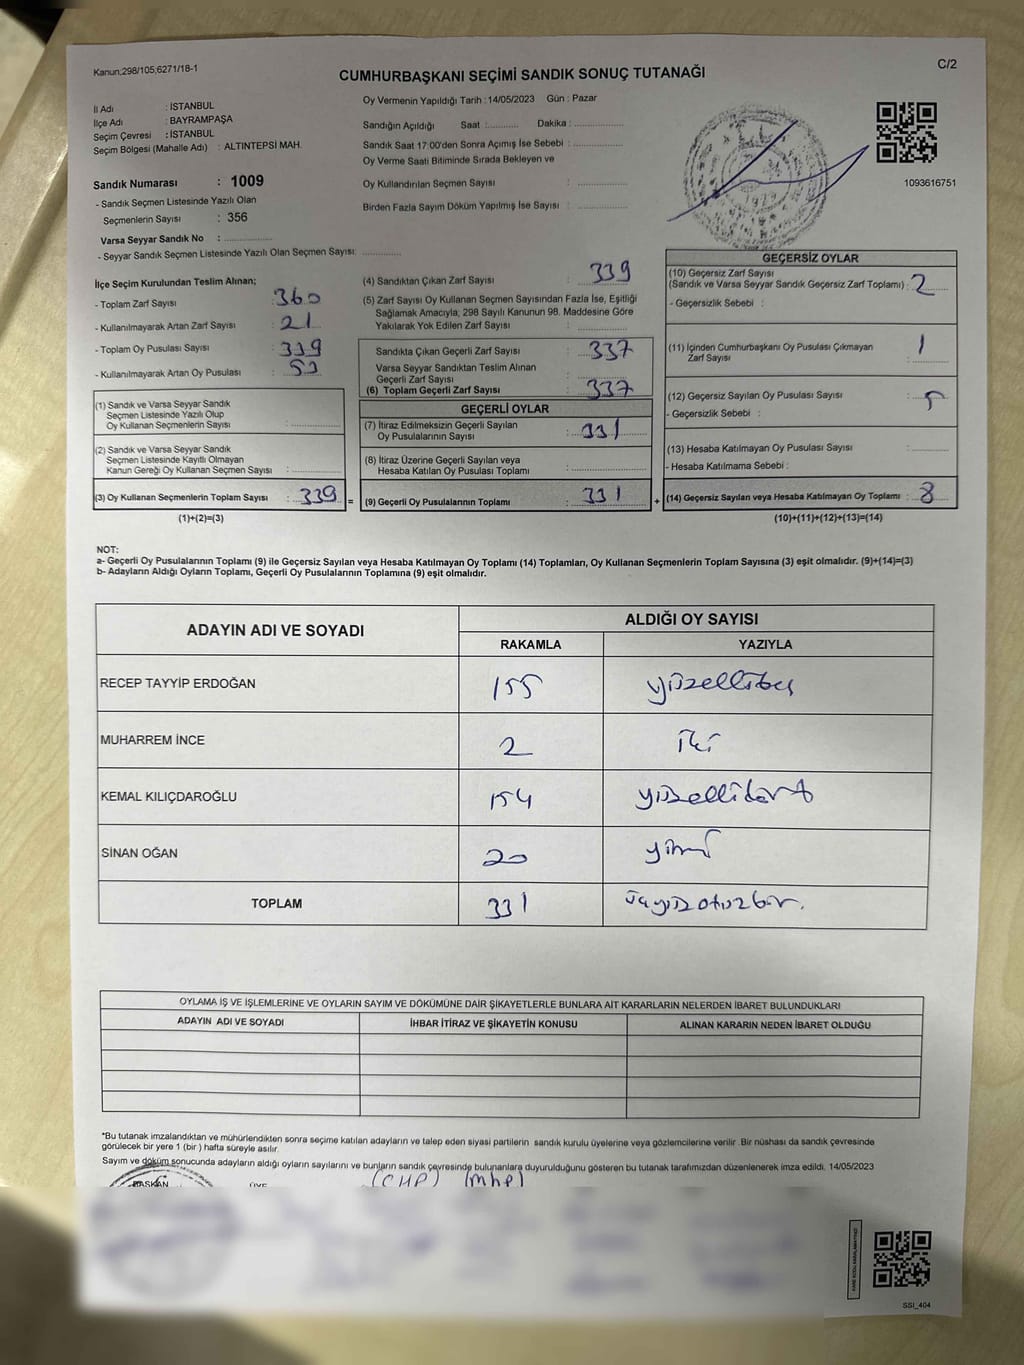 Kanun;298/105;6271/18-1
C/2
CUMHURBAŞKANI SEÇİMİ SANDIK SONUÇ TUTANAĞI
İl Adı : İSTANBUL
İlçe Adı : BAYRAMPAŞA
Seçim Çevresi : İSTANBUL
Seçim Bölgesi (Mahalle Adı) : ALTINTEPSİ MAH.
Sandık Numarası : 1009
- Sandık Seçmen Listesinde Yazılı Olan
Seçmenlerin Sayısı : 356
Varsa Seyyar Sandık No : ............
- Seyyar Sandık Seçmen Listesinde Yazılı Olan Seçmen Sayısı: ............
Oy Vermenin Yapıldığı Tarih : 14/05/2023 Gün : Pazar
Sandığın Açıldığı Saat :.......... Dakika : ..............
Sandık Saat 17:00'den Sonra Açımış İse Sebebi : ..............
Oy Verme Saati Bitiminde Sırada Bekleyen ve
Oy Kullandırılan Seçmen Sayısı : ..............
Birden Fazla Sayım Döküm Yapılmış İse Sayısı : ..............
1093616751
İlçe Seçim Kurulundan Teslim Alınan;
- Toplam Zarf Sayısı : 360
- Kullanılmayarak Artan Zarf Sayısı : 21
- Toplam Oy Pusulası Sayısı : 339
- Kullanılmayarak Artan Oy Pusulası :
(1) Sandık ve Varsa Seyyar Sandık
Seçmen Listesinde Yazılı Olup
Oy Kullanan Seçmenlerin Sayısı : ..............
(2) Sandık ve Varsa Seyyar Sandık
Seçmen Listesinde Kayıtlı Olmayan
Kanun Gereği Oy Kullanan Seçmen Sayısı : ..............
(3) Oy Kullanan Seçmenlerin Toplam Sayısı : 339 =
(1)+(2)=(3)
(4) Sandıktan Çıkan Zarf Sayısı : 339
(5) Zarf Sayısı Oy Kullanan Seçmen Sayısından Fazla İse, Eşitliği
Sağlamak Amacıyla; 298 Sayılı Kanunun 98. Maddesine Göre
Yakılarak Yok Edilen Zarf Sayısı : ..............
Sandıkta Çıkan Geçerli Zarf Sayısı : 337
Varsa Seyyar Sandıktan Teslim Alınan
Geçerli Zarf Sayısı : ..............
(6) Toplam Geçerli Zarf Sayısı : 337
GEÇERLİ OYLAR
(7) İtiraz Edilmeksizin Geçerli Sayılan
Oy Pusulalarının Sayısı : 331
(8) İtiraz Üzerine Geçerli Sayılan veya
Hesaba Katılan Oy Pusulası Toplamı : ..............
(9) Geçerli Oy Pusulalarının Toplamı : 331 +
GEÇERSİZ OYLAR
(10) Geçersiz Zarf Sayısı
(Sandık ve Varsa Seyyar Sandık Geçersiz Zarf Toplamı) : 2
- Geçersizlik Sebebi :
(11) İçinden Cumhurbaşkanı Oy Pusulası Çıkmayan
Zarf Sayısı : 1
(12) Geçersiz Sayılan Oy Pusulası Sayısı : 5
- Geçersizlik Sebebi :
(13) Hesaba Katılmayan Oy Pusulası Sayısı : ..............
- Hesaba Katılmama Sebebi :
(14) Geçersiz Sayılan veya Hesaba Katılmayan Oy Toplamı : 8
(10)+(11)+(12)+(13)=(14)
NOT:
a- Geçerli Oy Pusulalarının Toplamı (9) ile Geçersiz Sayılan veya Hesaba Katılmayan Oy Toplamı (14) Toplamları, Oy Kullanan Seçmenlerin Toplam Sayısına (3) eşit olmalıdır. (9)+(14)=(3)
b- Adayların Aldığı Oyların Toplamı, Geçerli Oy Pusulalarının Toplamına (9) eşit olmalıdır.
ADAYIN ADI VE SOYADI ALDIĞI OY SAYISI
RAKAMLA YAZIYLA
RECEP TAYYİP ERDOĞAN 155 yüzellibeş
MUHARREM İNCE 2 iki
KEMAL KILIÇDAROĞLU 154 yüzellidört
SİNAN OĞAN 20 yirmi
TOPLAM 331 üçyüzotuzbir.
OYLAMA İŞ VE İŞLEMLERİNE VE OYLARIN SAYIM VE DÖKÜMÜNE DAİR ŞİKAYETLERLE BUNLARA AİT KARARLARIN NELERDEN İBARET BULUNDUKLARI
ADAYIN ADI VE SOYADI İHBAR İTİRAZ VE ŞİKAYETİN KONUSU ALINAN KARARIN NEDEN İBARET OLDUĞU
*Bu tutanak imzalandıktan ve mühürlendikten sonra seçime katılan adayların ve talep eden siyasi partilerin sandık kurulu üyelerine veya gözlemcilerine verilir .Bir nüshası da sandık çevresinde
görülecek bir yere 1 (bir ) hafta süreyle asılır.
Sayım ve döküm sonucunda adayların aldığı oyların sayılarını ve bunların sandık çevresinde bulunanlara duyurulduğunu gösteren bu tutanak tarafımızdan düzenlenerek imza edildi. 14/05/2023
BAŞKAN ÜYE (CHP) (mhp)
SSI_404